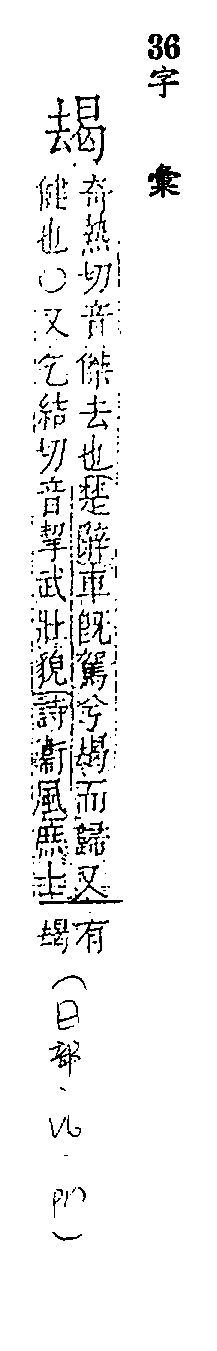 36字彙
朅
奇熱切音傑去也楚辭車既駕兮朅而歸又
健也○又乞結切音挈武壯貌詩衞風庶士
有
朅
（日部